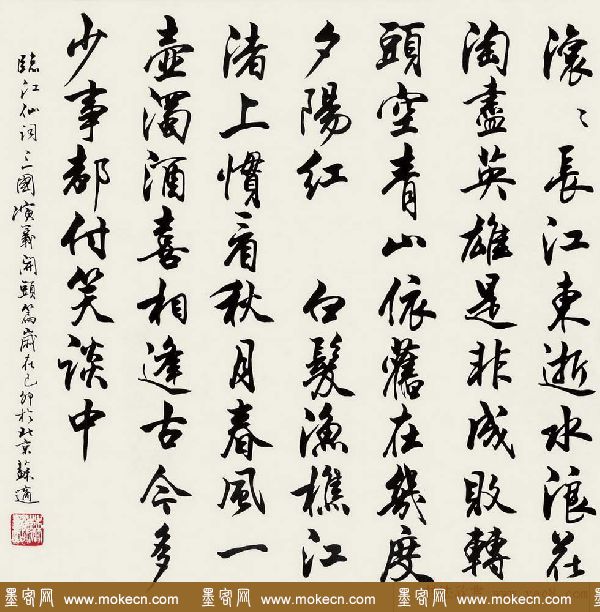 滾〻長江東逝水浪花
淘盡英雄是非成敗轉
頭空青山依舊在幾度
夕陽紅 白髮漁樵江
渚上慣看秋月春風一
壺濁酒喜相逢古今多
少事都付笑談中
臨江仙詞三國演義開頭篇歲在己卯於北京蘇適
墨客网 www.mokecn.com 墨客网 www.mokecn.com 墨客网 www.mokecn.com